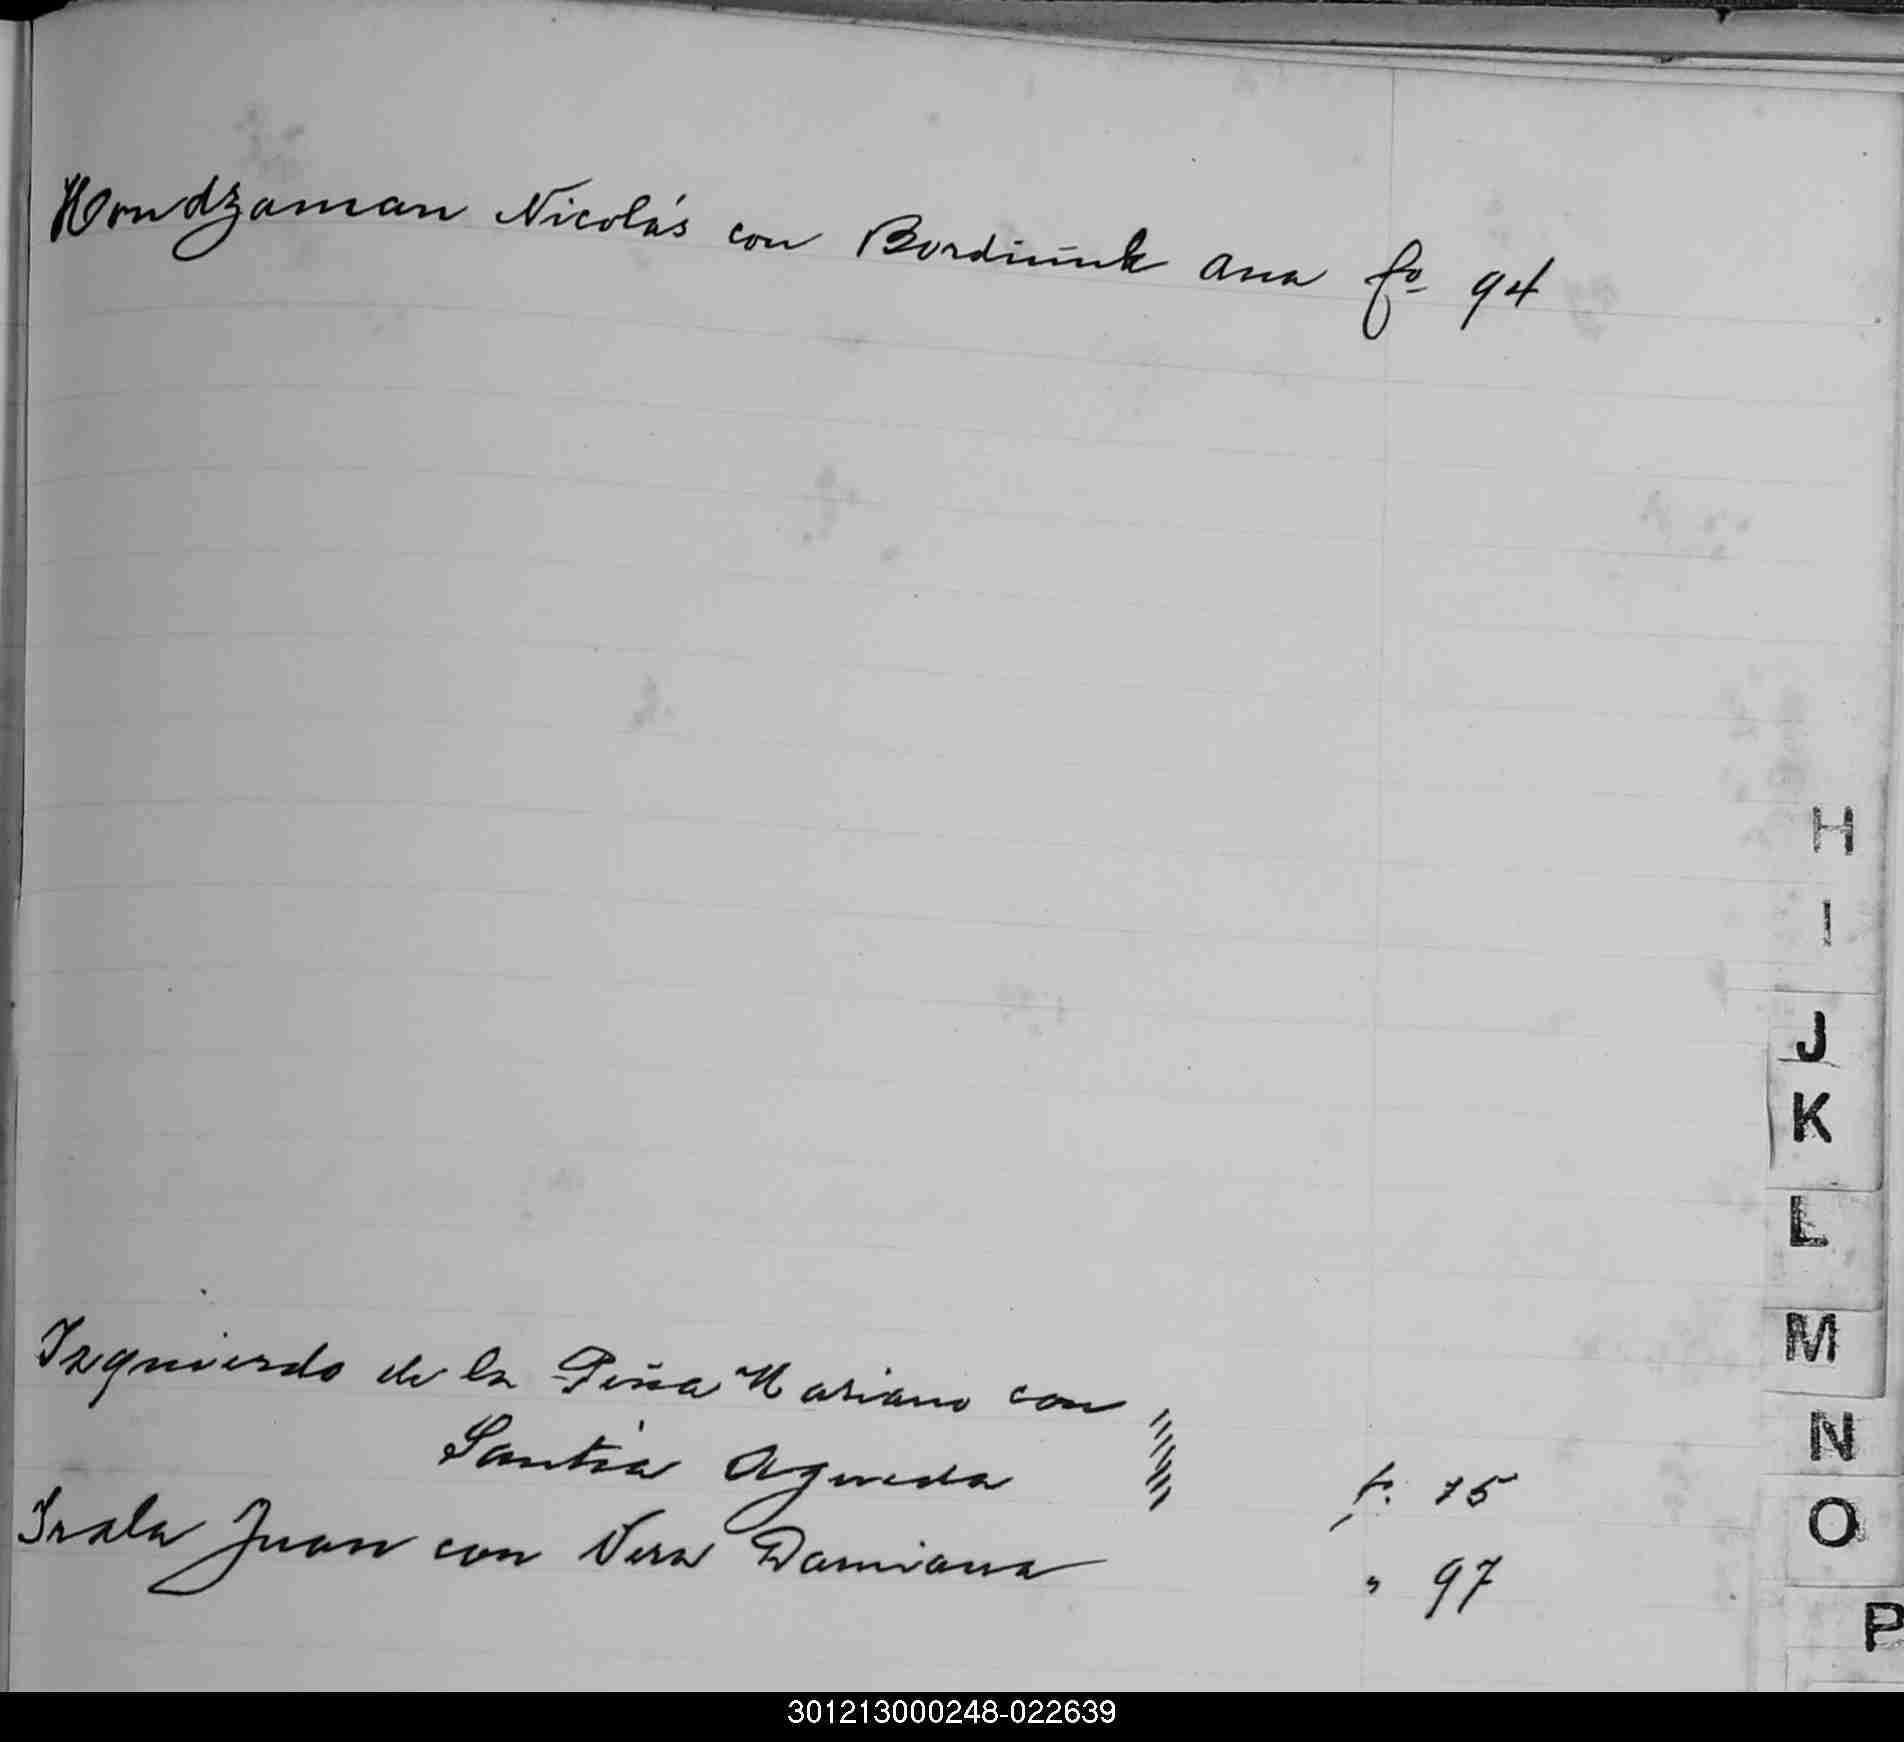 Hondzaman Nicolás con Bordiúnk Ana fo 94
H
I
J
K
L
M
N
O
P
Izquierdo de la Piña Mariano con
Santia Agueda f. 75
Irala Juan con Vera Damiana " 97
301213000248-022639